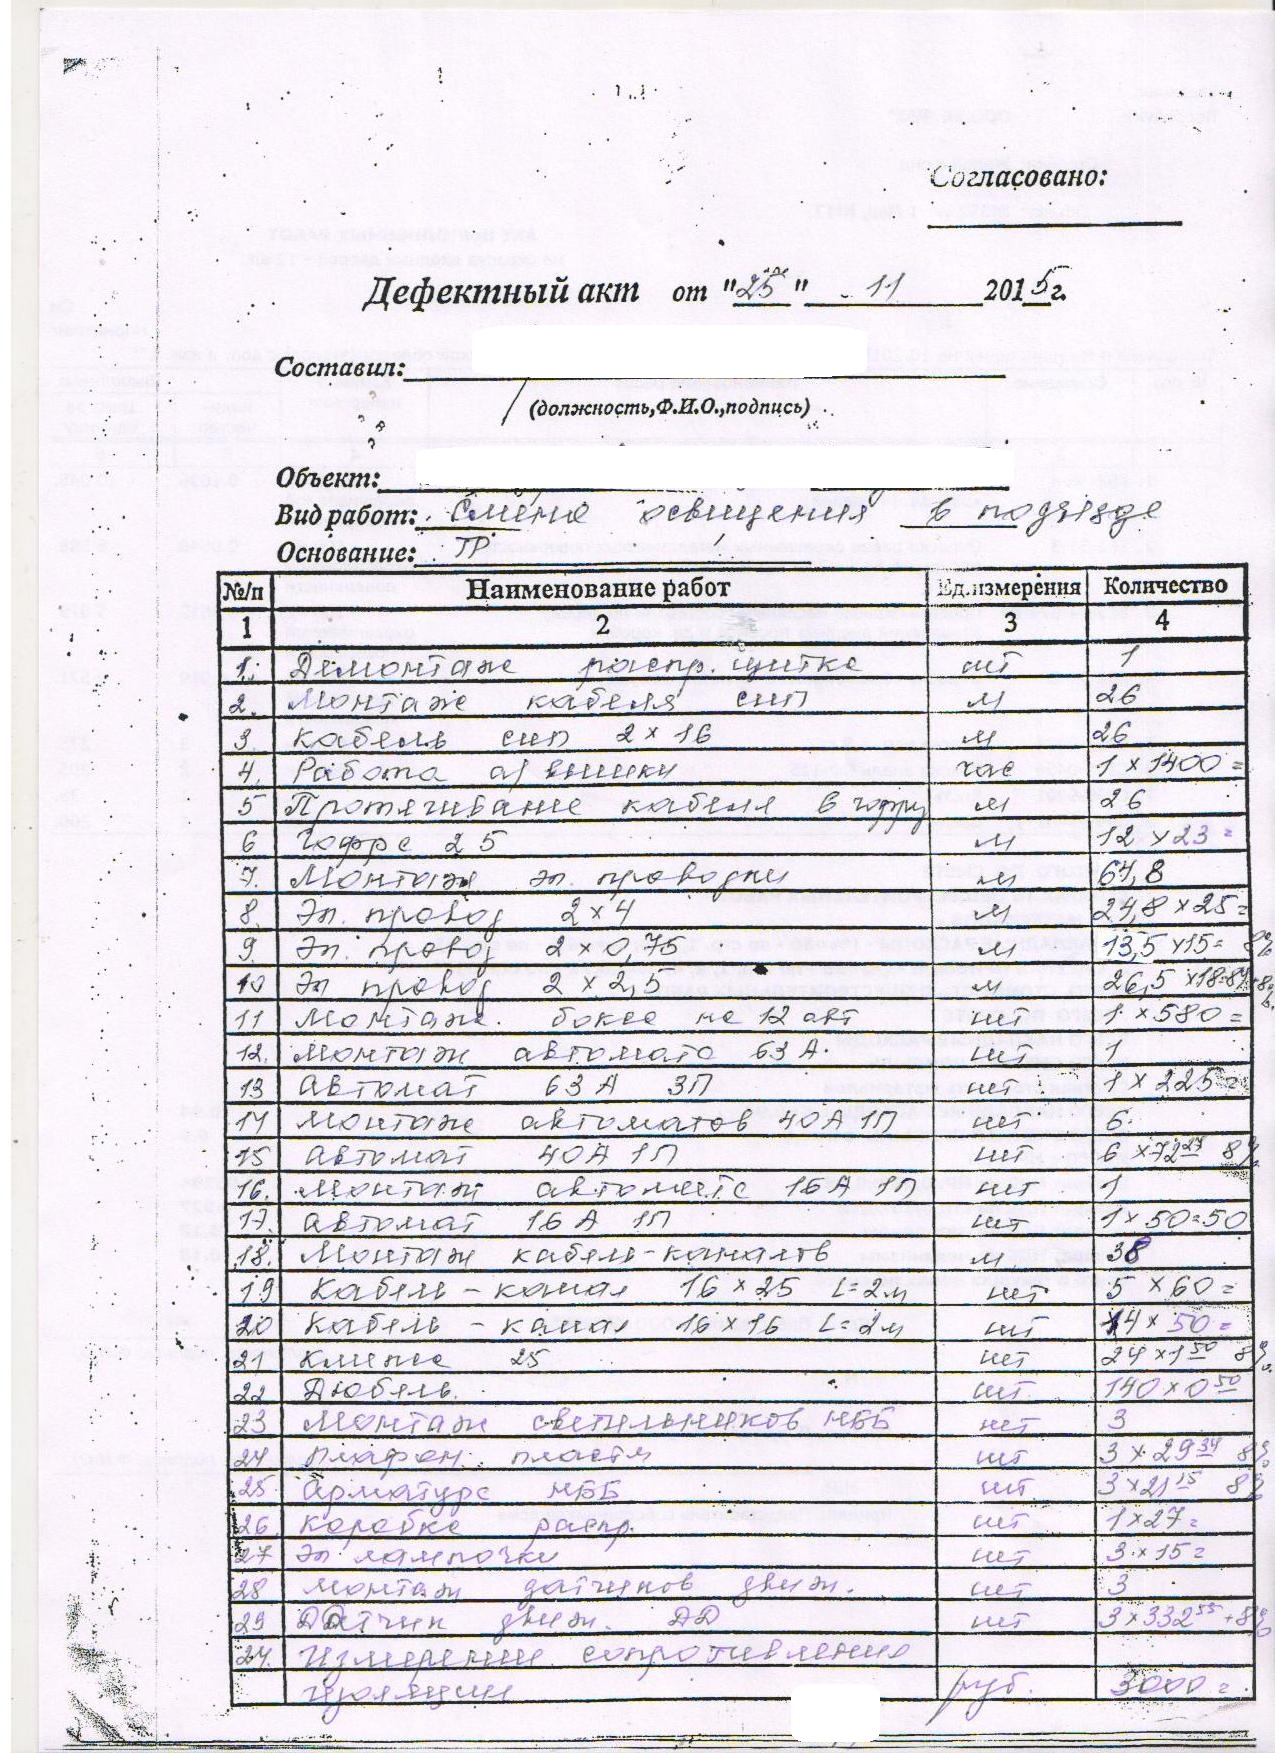 Согласовано:
Дефектный акт от "25" 11 2015г.
Составил:
(должность,Ф.И.О.,подпись)
Объект:
Вид работ: Смена освещения в подъезде
Основание: ТР
№/п Наименование работ Ед.измерения Количество
1 2 3 4
1. Демонтаж распр. щитка шт 1
2. Монтаж кабеля сип м 26
3. Кабель сип 2×16 м 26
4. Работа а/вышки час 1×1400=
5 Протягивание кабеля в гофру м 26
6 Гофра 25 м 12×23=
7. Монтаж эл. проводки м 64,8
8. Эл. провод 2×4 м 24,8×25=
9. Эл. провод 2×0,75 м 13,5×15= 8%
10 Эл провод 2×2,5 м 26,5×18=
11 Монтаж бокса на 12 авт шт 1×580=
12. Монтаж автомата 63А. шт 1
13 Автомат 63А 3П шт 1×225=
14 Монтаж автоматов 40А 1П шт 6
15 Автомат 40А 1П шт 6×72 27 8%
16. Монтаж автомата 16А 1П шт 1
17. Автомат 16А 1П шт 1×50=50
18. Монтаж кабель-каналов м 38
19 Кабель-канал 16×25 L=2м шт 5×60=
20 Кабель-канал 16×16 L=2м шт 14×50=
21 Клипса 25 шт 24×1 50 8%
22 Дюбель. шт. 140×0 50
23 Монтаж светильников НББ шт 3
24 Плафон пластм шт 3×29 34 8%
25 Арматура НББ шт 3×21 15 8%
26. Коробка распр. шт 1×27=
27 Эл лампочки шт 3×15=
28 Монтаж датчиков движ. шт 3
29 Датчик движ. ДД шт 3×332 55+8%
24. Измерение сопротивления
изоляции руб. 3000=